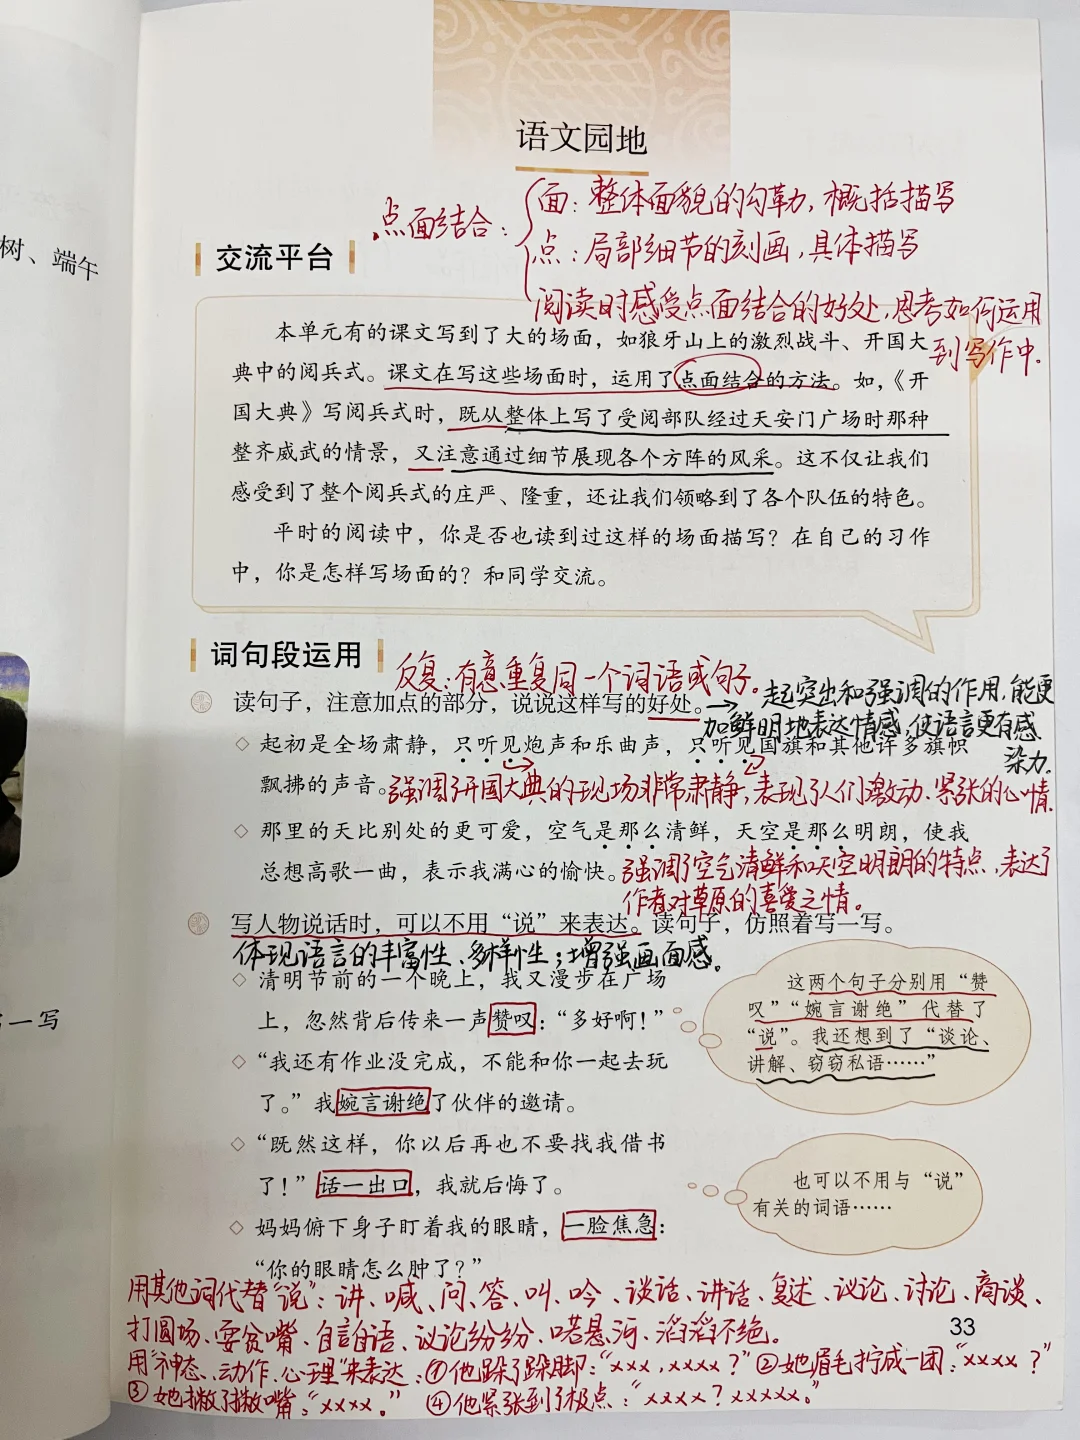 树、端午
一写
语文园地
点面结合：
面：整体面貌的勾勒，概括描写
点：局部细节的刻画，具体描写
阅读时感受点面结合的好处，思考如何运用
到写作中.
交流平台
本单元有的课文写到了大的场面，如狼牙山上的激烈战斗、开国大
典中的阅兵式。课文在写这些场面时，运用了点面结合的方法。如，《开
国大典》写阅兵式时，既从整体上写了受阅部队经过天安门广场时那种
整齐威武的情景，又注意通过细节展现各个方阵的风采。这不仅让我们
感受到了整个阅兵式的庄严、隆重，还让我们领略到了各个队伍的特色。
平时的阅读中，你是否也读到过这样的场面描写？在自己的习作
中，你是怎样写场面的？和同学交流。
词句段运用
反复：有意重复同一个词语或句子。
读句子，注意加点的部分，说说这样写的好处。
→起突出和强调的作用，能更
加鲜明地表达情感，使语言更有感
染力.
起初是全场肃静，只听见炮声和乐曲声，只听见国旗和其他许多旗帜
飘拂的声音。
强调了开国大典的现场非常肃静，表现了人们激动、紧张的心情.
那里的天比别处的更可爱，空气是那么清鲜，天空是那么明朗，使我
总想高歌一曲，表示我满心的愉快。
强调了空气清鲜和天空明朗的特点，表达了
作者对草原的喜爱之情。
写人物说话时，可以不用“说”来表达。读句子，仿照着写一写。
体现语言的丰富性、多样性；增强画面感。
清明节前的一个晚上，我又漫步在广场
上，忽然背后传来一声赞叹：“多好啊！”
“我还有作业没完成，不能和你一起去玩
了。”我婉言谢绝了伙伴的邀请。
“既然这样，你以后再也不要找我借书
了！”话一出口，我就后悔了。
妈妈俯下身子盯着我的眼睛，一脸焦急：
“你的眼睛怎么肿了？”
这两个句子分别用“赞
叹”“婉言谢绝”代替了
“说”。我还想到了“谈论、
讲解、窃窃私语……”
也可以不用与“说”
有关的词语……
用其他词代替“说”：讲、喊、问、答、叫、吟、谈话、讲话、复述、议论、讨论、商谈、
打圆场、耍贫嘴、自言自语、议论纷纷、喏悬河、滔滔不绝。
33
用“神态、动作、心理”来表达：①他跺了跺脚：“××××，××××？”②她眉毛拧成一团：“××××？”
③她撇了撇嘴：“××××。”④他紧张到了极点：“××××？×××××。”